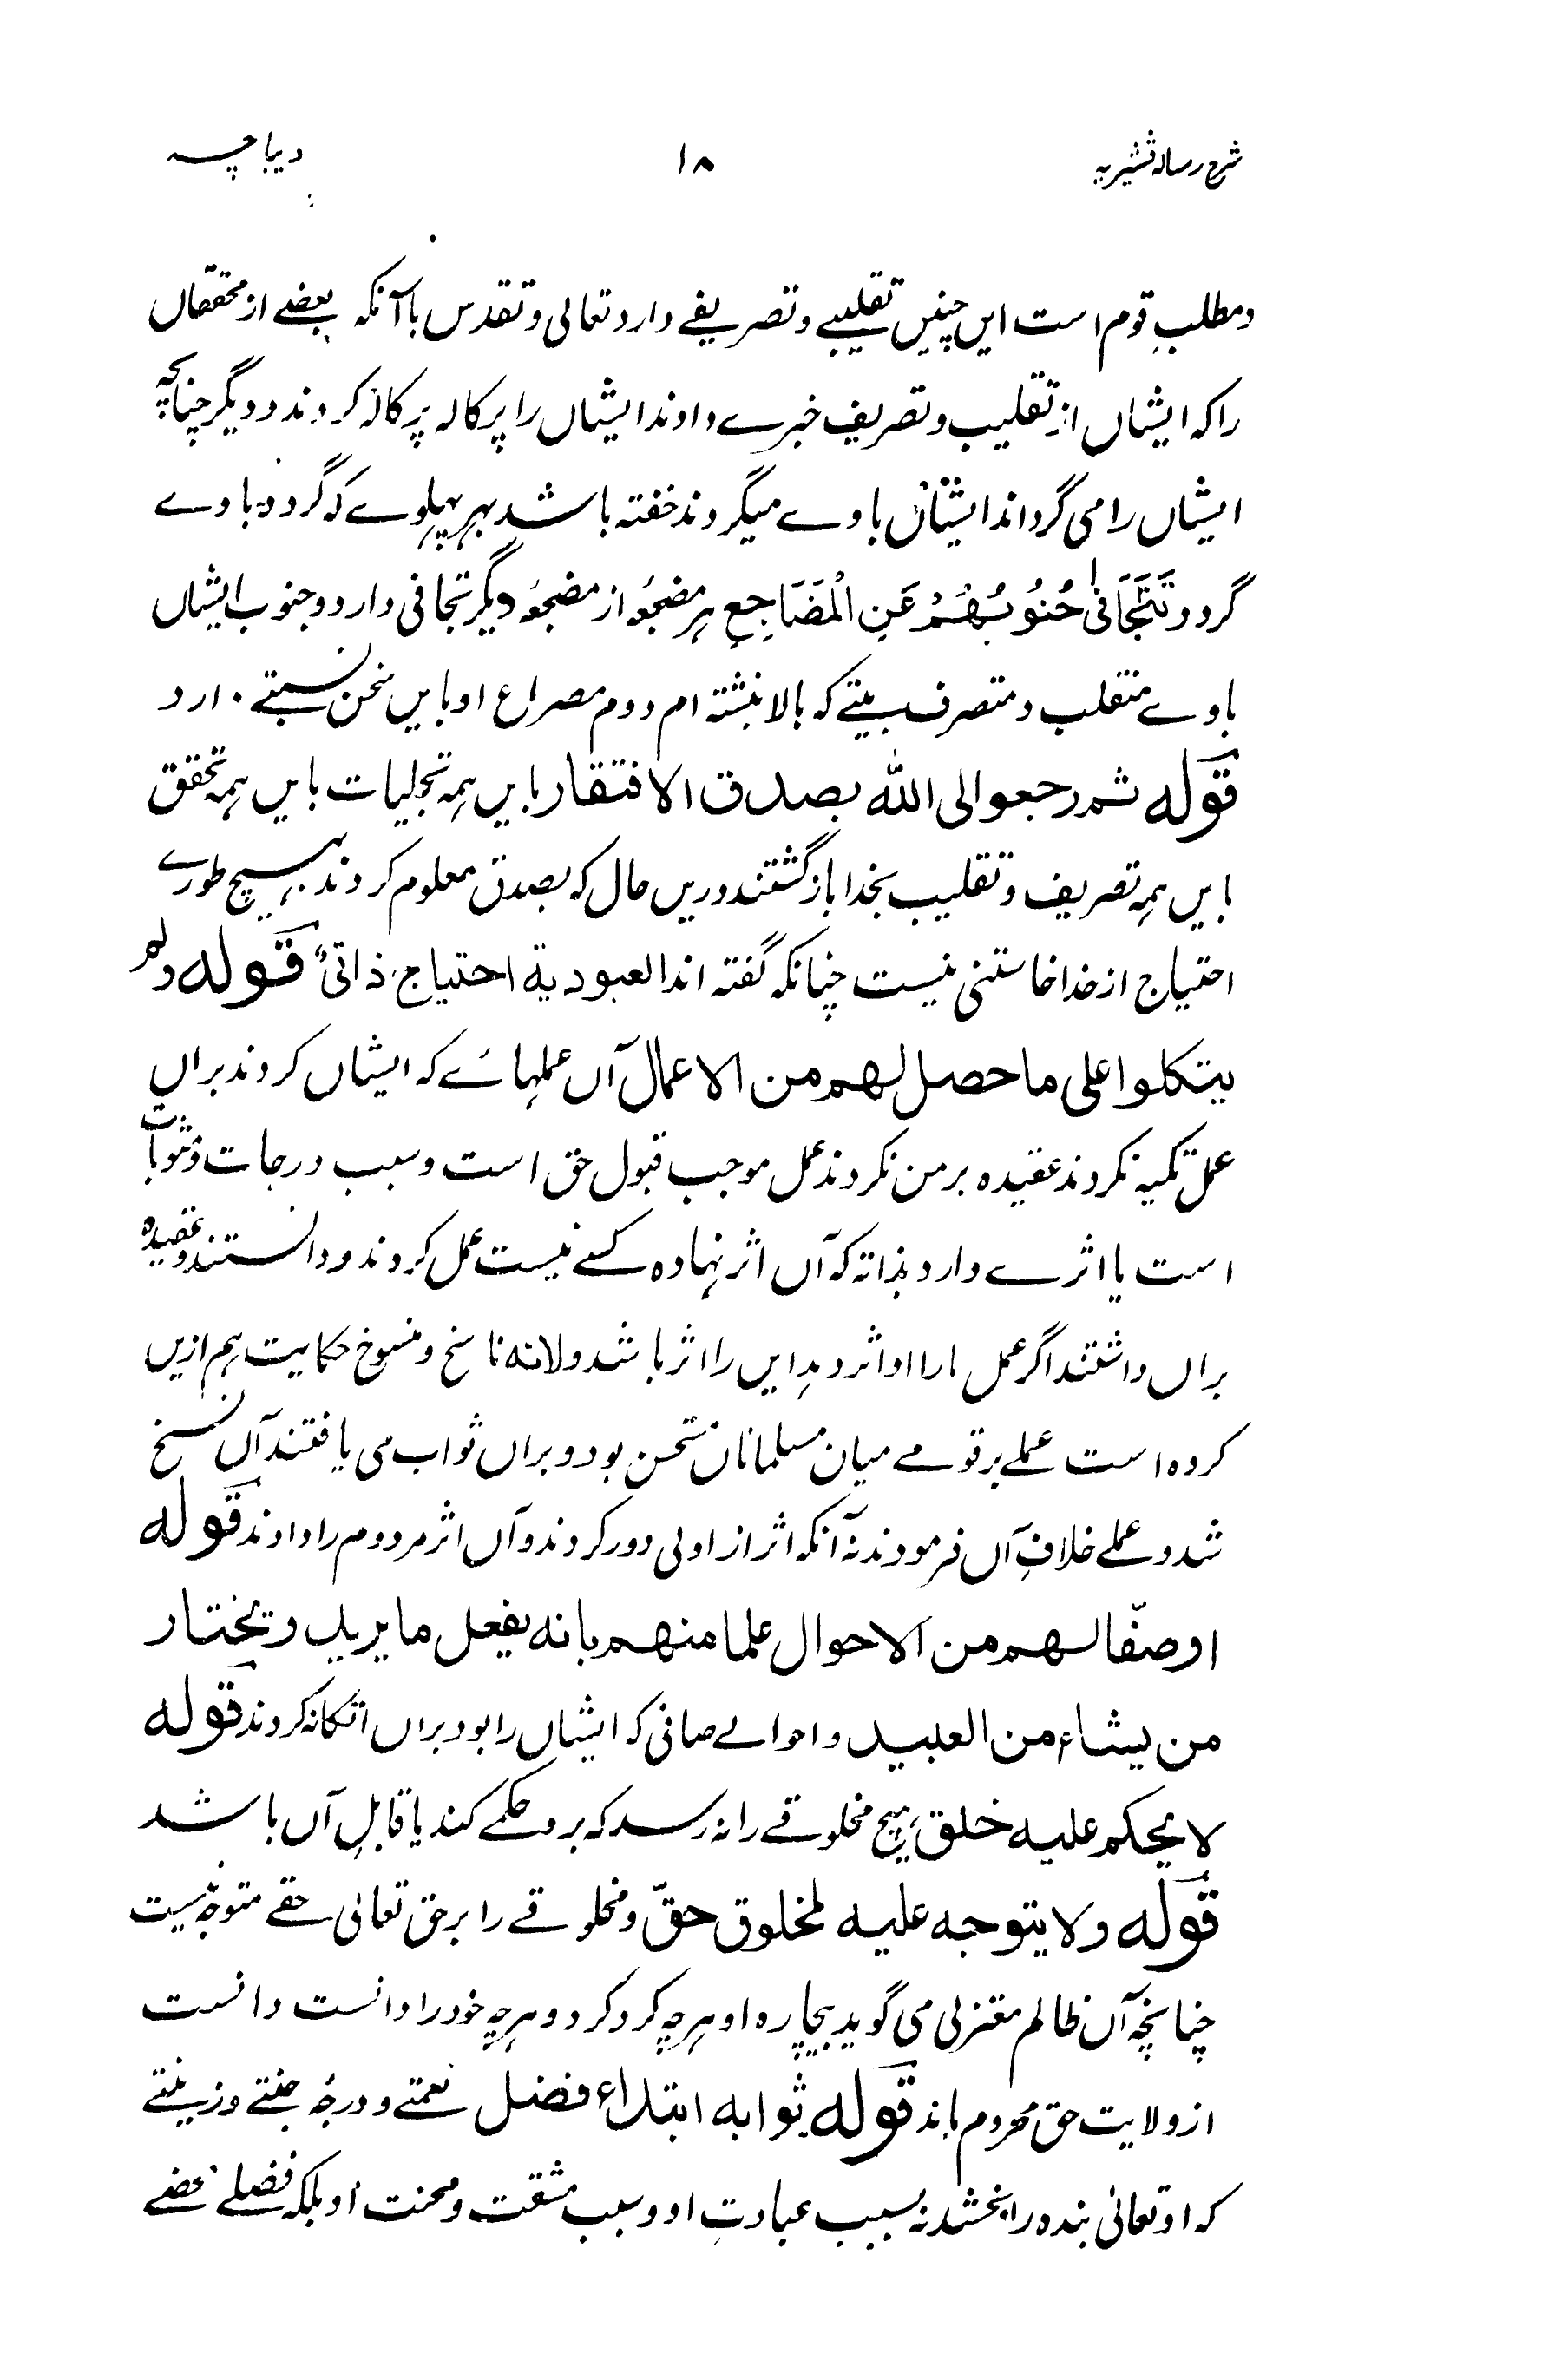 شرح رسالہ قشیریہ ۱۸ دیباچہ
و مطلبِ قوم است ایں چنیں تقلیبے و تصریفے دارد تعالی و تقدس با آنکہ بعضے از محققاں
را کہ ایشاں از تقلیب و تصریف خبرے دادند ایشاں را پرکالہ پرکالہ کردند و دیگر چنانچہ
ایشاں را می گرداند ایشاں با وے میگردند خفتہ باشد بہر پہلوے کہ گردد با وے
گردد تَتَجَافٰی جُنُوبُهُمْ عَنِ الْمَضَاجِعِ ہر مضجعہٗ از مضجعہٗ دیگر تجافی دارد و جنوب ایشاں
با وے متقلب و متصرف بیتے کہ بالا نبشتہ ام دوم مصراع او بایں سخن نسبتے دارد
قوله ثم رجعوا الى الله بصدق الافتقار بایں ہمہ تجلیات بایں ہمہ تحقق
بایں ہمہ تصریف و تقلیب بخدا باز گشتند دریں حال کہ بصدق معلوم کردند بہیچ طورے
احتیاج از خدا خاستنی نیست چنانکہ گفتہ اند العبودیة احتیاج ذاتی قوله ولم
یتکلوا علی ما حصل لهم من الاعمال آں عملہائے کہ ایشاں کردند براں
عمل تکیہ نکردند عقیدہ بر من نکردند عمل موجب قبول حق است و سبب درجات و مثوبات
است یا اثرے دارد بذاتہ کہ آں اثر نہادہ کسے نیست عمل کردند و دانستند و عقیدہ
براں داشتند اگر عمل مارا او اثر دہد ایں را اثر باشد ولانہ ناسخ و منسوخ حکایت ہم ازیں
کردہ است عملے بر قومے میان مسلمانان مستحسن بود و براں ثواب می یافتند آں نسخ
شد و عملے خلافِ آں فرمودند نہ آنکہ اثر از اولی دور کردند و آں اثر مر دوم را دادند قوله
او صفا لهم من الاحوال علما منهم بانه یفعل ما یرید و یختار
من یشاء من العبید و احوالے صافی کہ ایشاں را بود براں اتکا نہ کردند قوله
لا یحکم علیه خلق ہیچ مخلوقے را نہ رسد کہ برو حکمے کند یا قابلِ آں باشد
قوله ولا یتوجه علیه لمخلوق حقّ و مخلوقے را بر حق تعالیٰ حقے متوجہ نیست
چنانچہ آں ظالم معتزلی می گوید بیچارہ او ہرچہ کرد کرد و ہرچہ خود را دانست دانست
از ولایت حق محروم ماند قوله ثوابه ابتداء فضل نعمتے و درجۂ جنتے و زینتے
کہ او تعالیٰ بندہ را بخشد نہ بسبب عبادتِ او و سبب مشقت و محنت او بلکہ فضلے